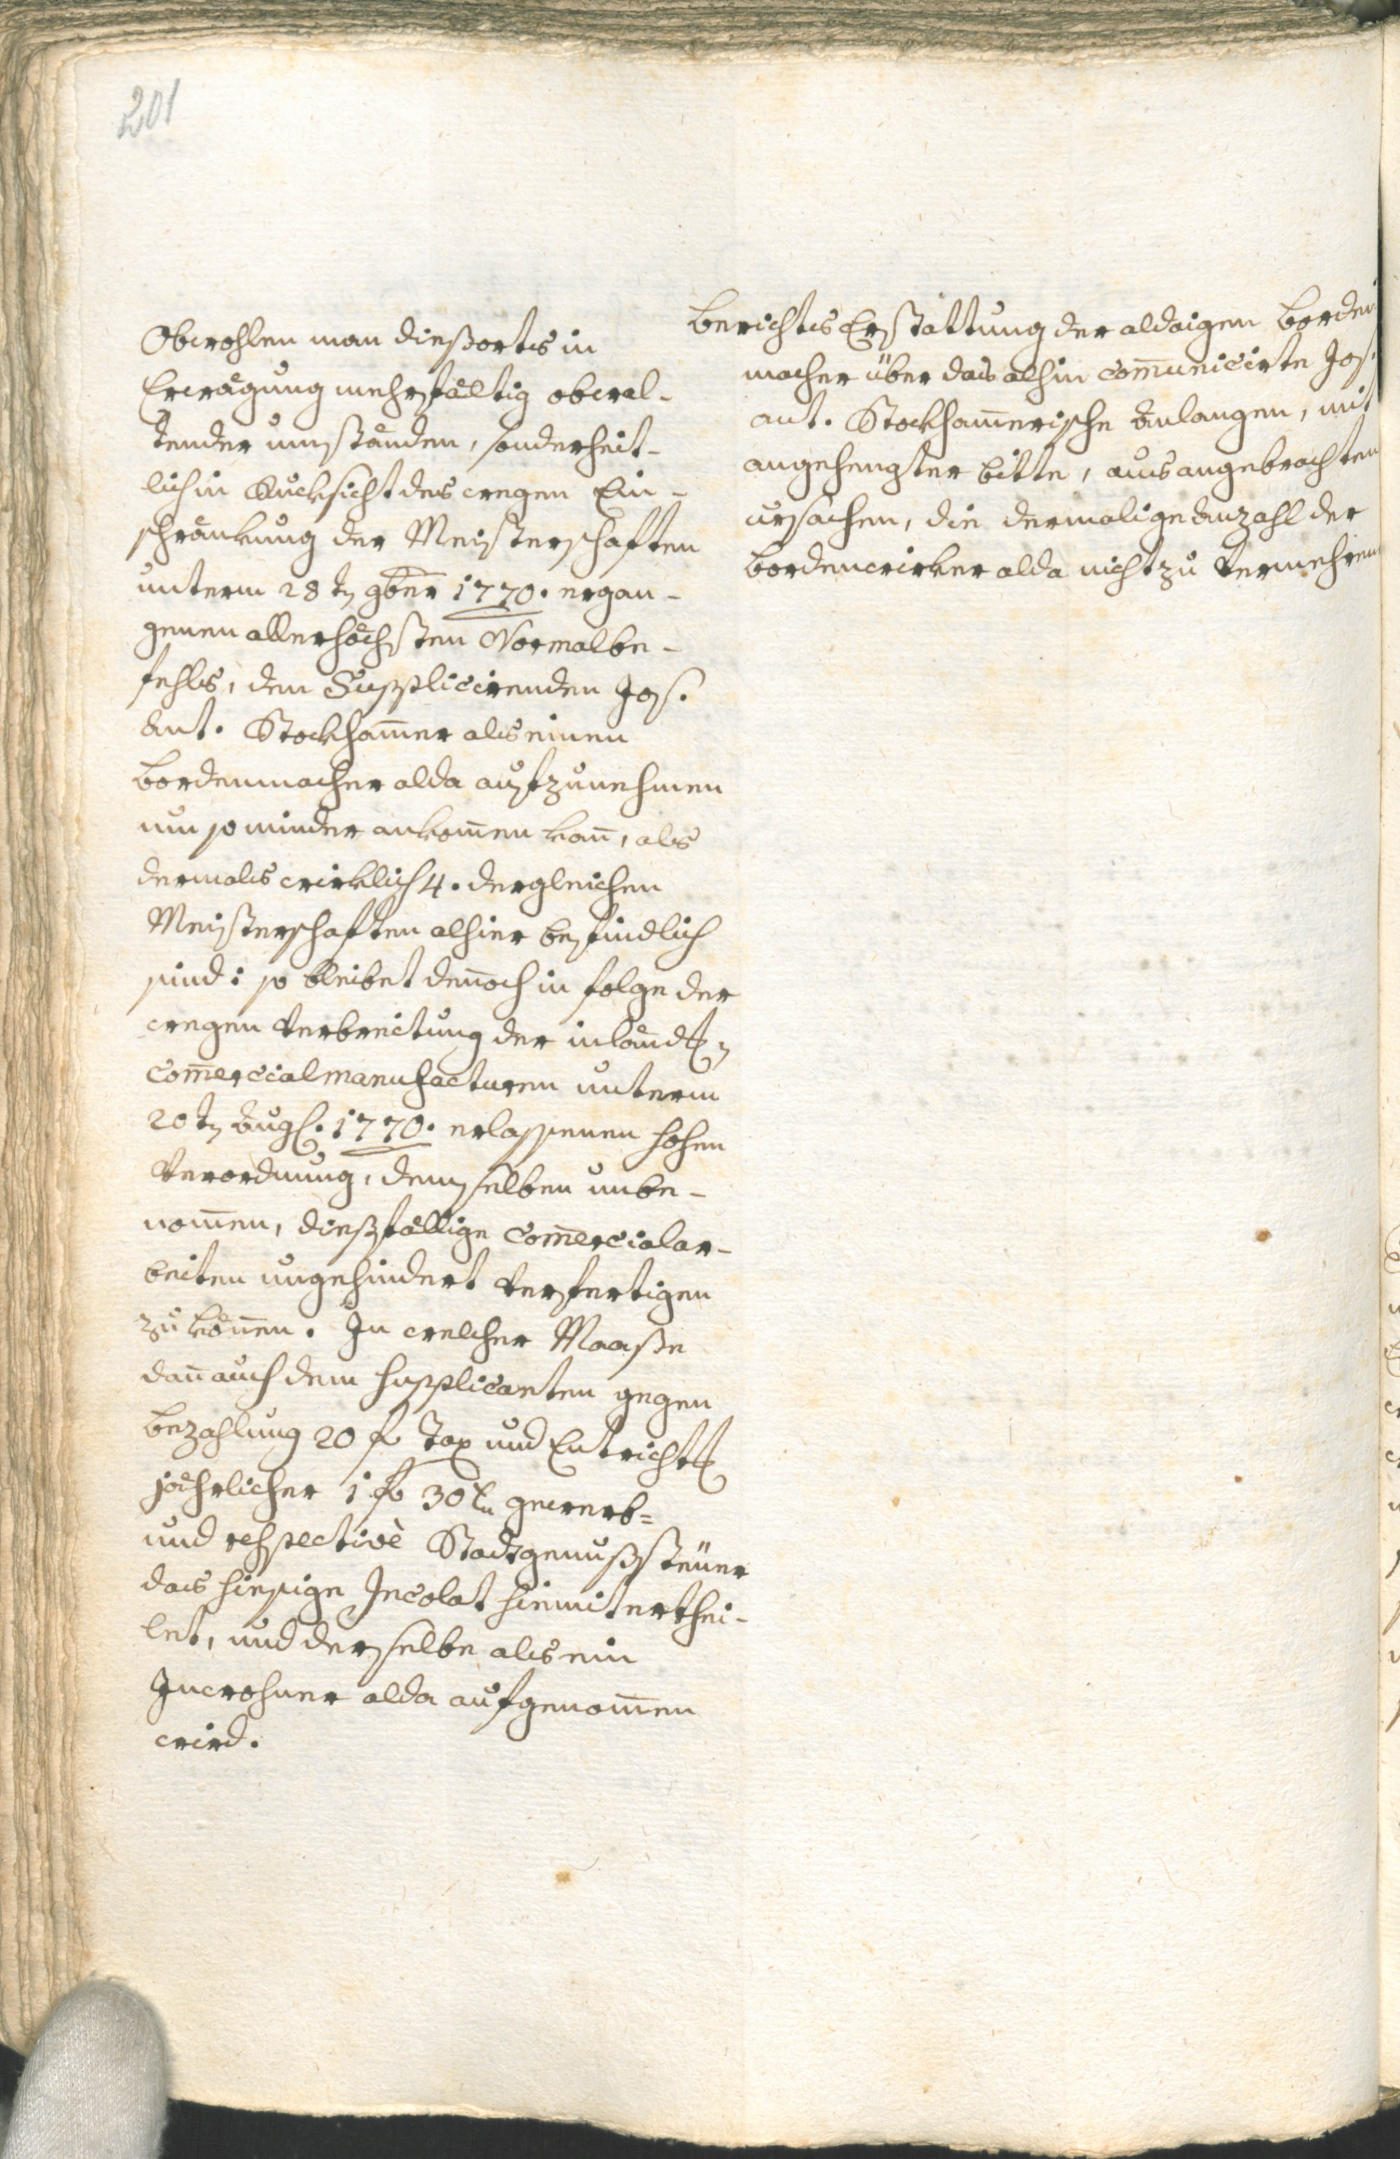 201
Obwohlen man dießorts in
Erwägung mehrfältig obwal-
tender umständen, sonderheit-
lich in Rucksicht des wegen Ein-
schränkung der Meisterschaften
unterm 28tn 9ber 1770. ergan-
genen allerhöchsten Normalbe-
fehls, den Supplicirenden Jos.
Ant. Stockham̄er als einen
Bordenmacher alda aufzunehmen
um so minder ankom̄en kan̄, als
dermals wirklich 4. dergleichen
Meisterschaften alhier befindlich
sind: so bleibet den̄och in folge der
wegen Verbreitung der inländ.
Com̄ercialmanufacturen unterm
20tn Aug. 1770. erlassenen hohen
Verordnung, demselben unbe-
nom̄en, dießfällige Com̄ercialar-
beiten ungehindert verfertigen
zu kön̄en. In welcher Maaße
dan̄ auch dem Supplicanten gegen
bezahlung 20 f Tax und Entricht.
jährlicher 1 f 30 kr gewerb=
und respectivè Stadtgenußsteuer
das hiesige Incolat hiemit erthei-
let, und derselbe als ein
Inwohner alda aufgenom̄en
wird.
Berichts Erstattung der aldaigen Borden
macher über das alhin com̄unicirte Jos.
Ant. Stockham̄erische Anlangen, mit
angehengter bitte, aus angebrachten
ursachen, die dermalige Anzahl der
Bordenwirker alda nicht zu vermehren